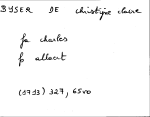 BYSER DE christique claire
fa charles
p albert
(1713) 327, 6500